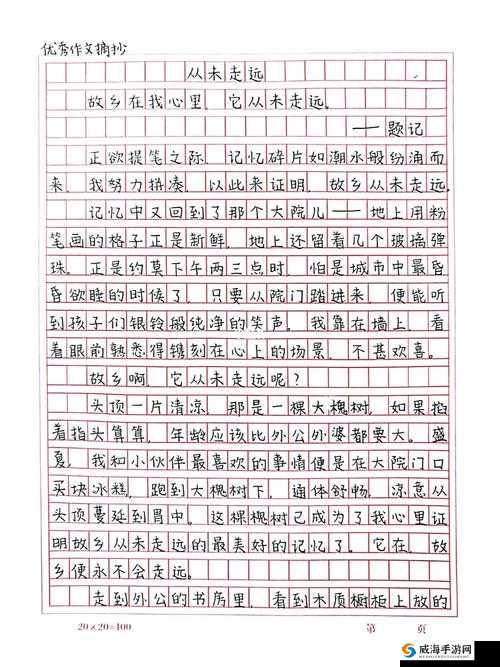 优秀作文摘抄
从未走远
故乡在我心里，它从未走远。
——题记
正欲提笔之际，记忆碎片如潮水般纷涌而
来，我努力拼凑，以此来证明，故乡从未走远。
记忆中又回到了那个大院儿——地上用粉
笔画的格子正是新鲜，地上还留着几个玻璃弹
珠。正是约莫下午两三点时，怕是城市中最昏
昏欲睡的时候了，只要从院门踏进来，便能听
到孩子们银铃般纯净的笑声。我靠在墙上，看
着眼前熟悉得镌刻在心上的场景，不甚欢喜。
故乡啊，它从未走远呢？
头顶一片清凉，那是一棵大槐树，如果掐
着指头算算，年龄应该比外公外婆都要大。盛
夏，我和小伙伴最喜欢的事情便是在大院门口
买块冰糕，跑到大槐树下，通体舒畅，凉意从
头顶蔓延到胃中。这棵槐树已成为了我心里证
明故乡从未走远的最美好的记忆了。它在，故
乡便永不会走远。
走到外公的书房里，看到木质橱柜上放的
20×20=400 第 页
威海手游网